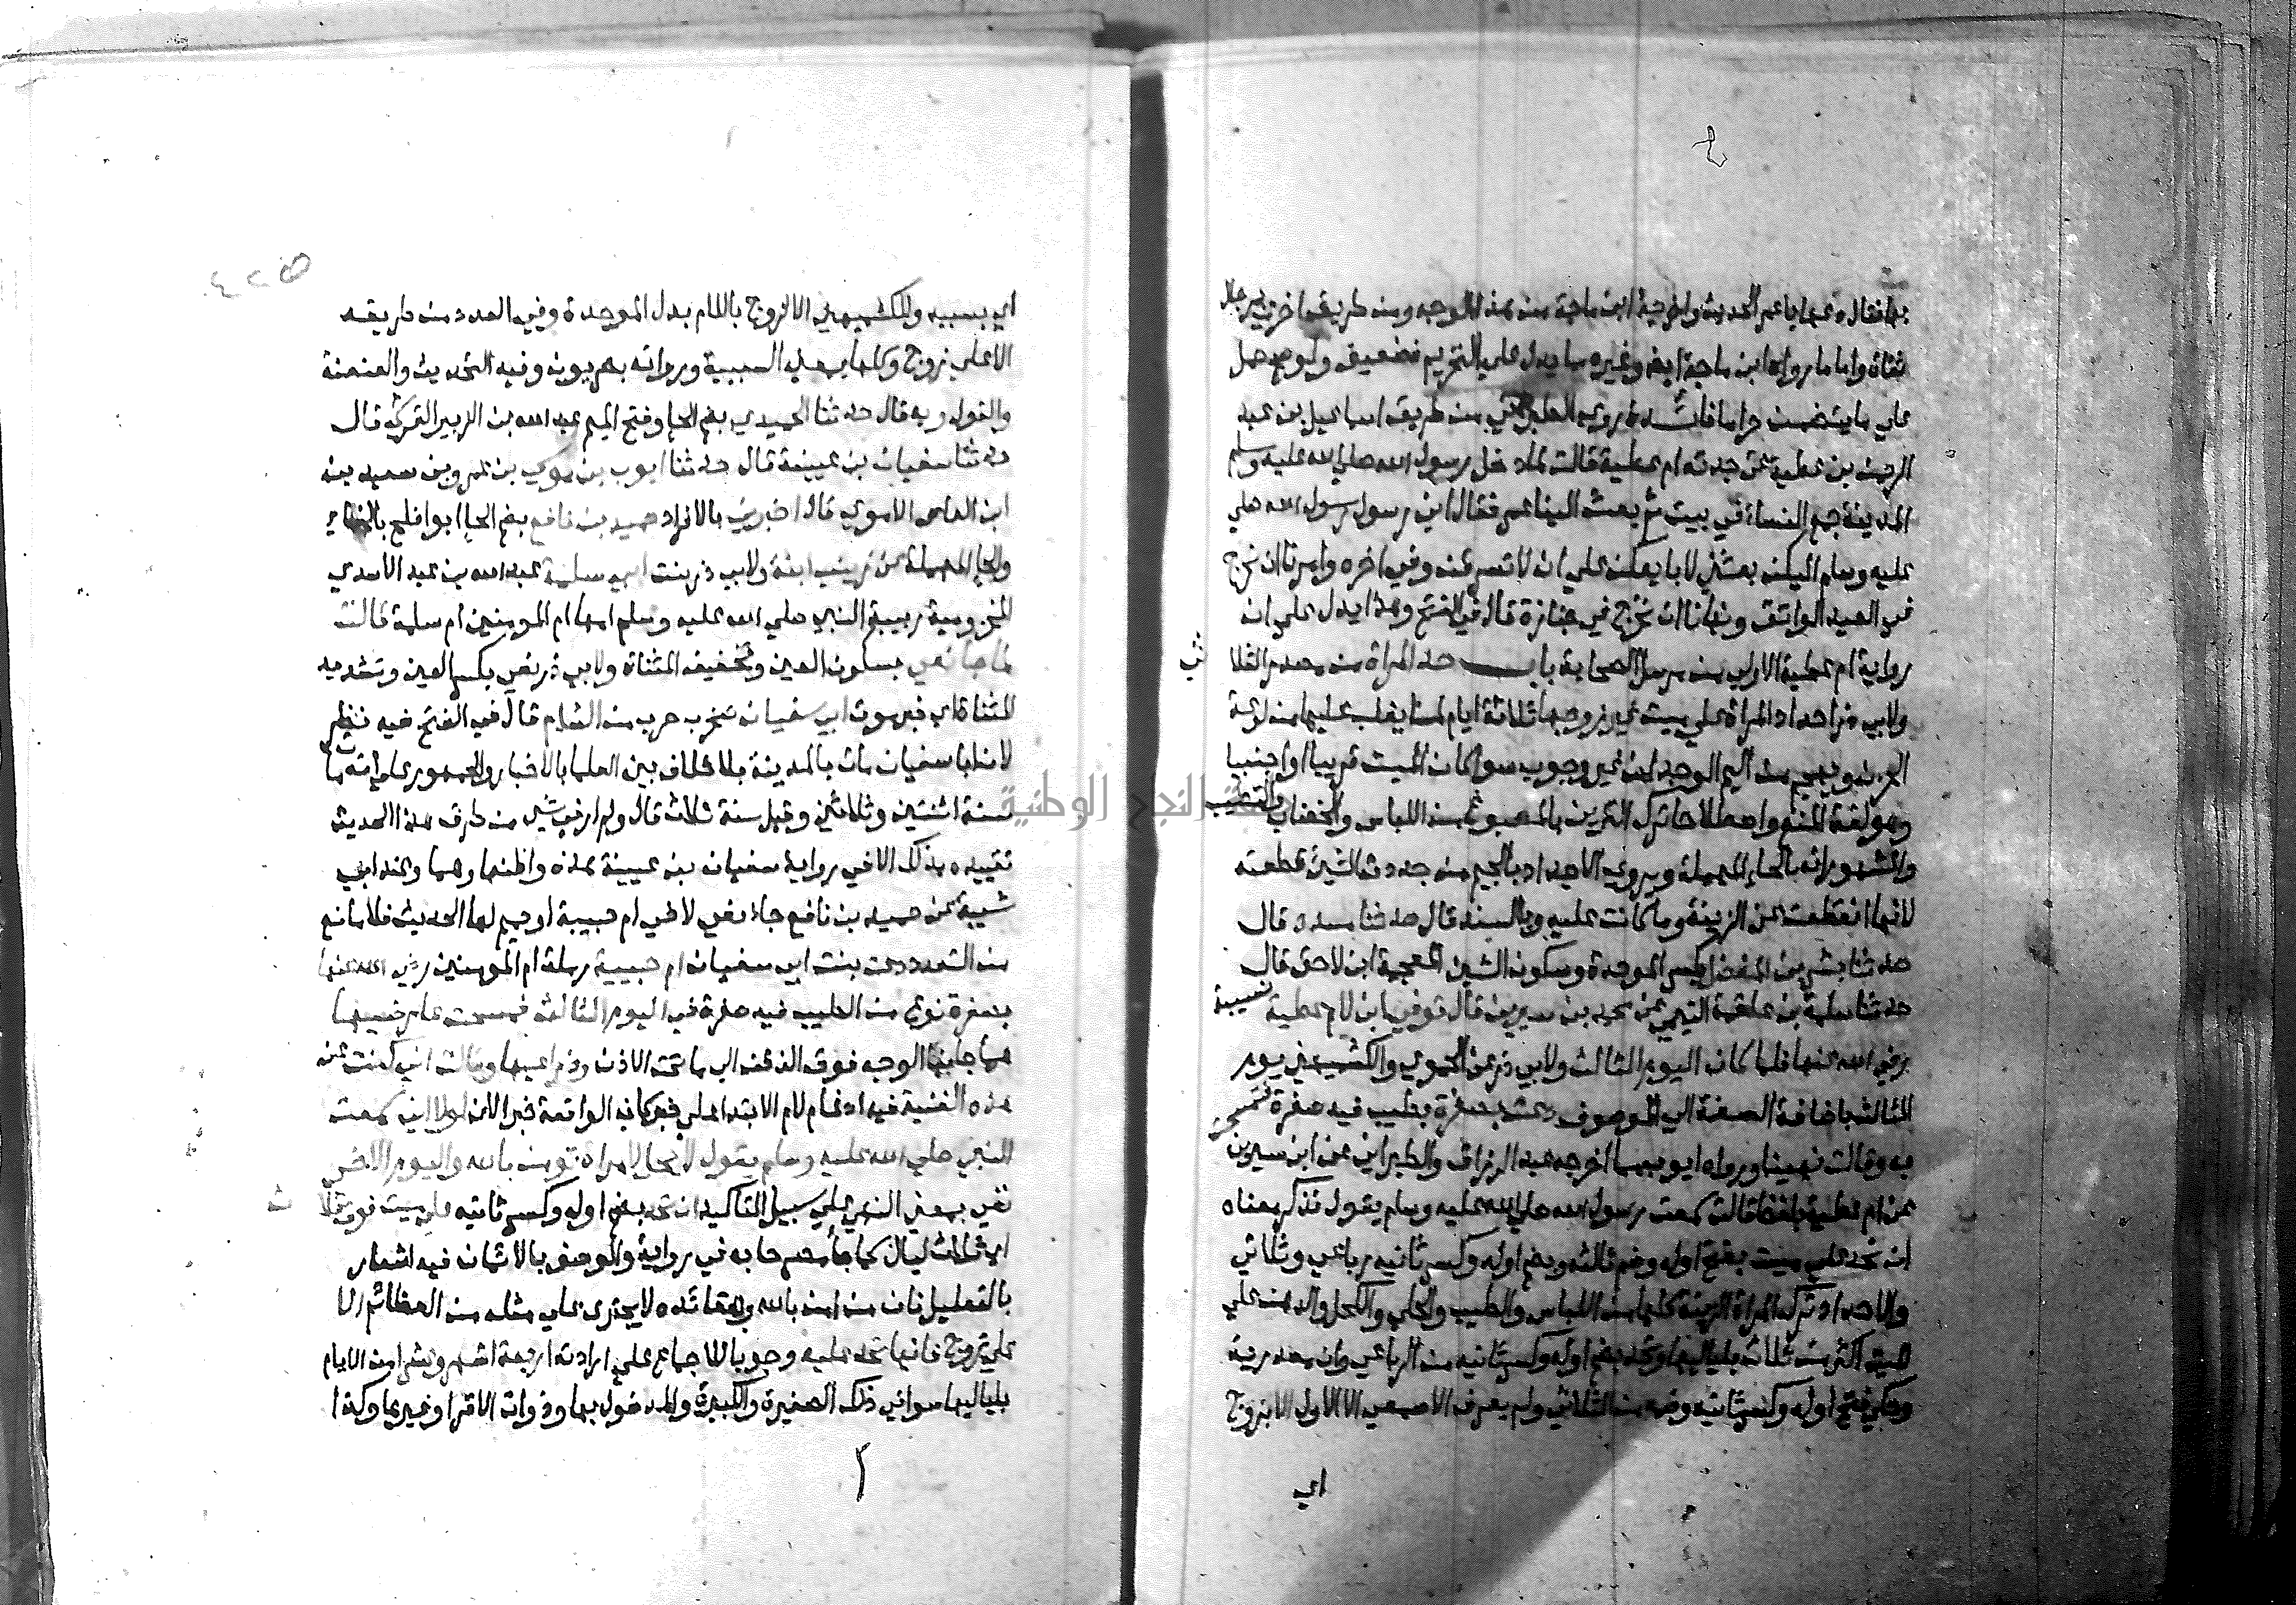 بها فقال دعها يا عمر الحديث واخرجه ابن ماجة من هذا الوجه ومن طريق اخرى برجال
ثقاة واما ما رواه ابن ماجة ايضا وغيره مما يدل علي التحريم فضعيف ولو صح حمل
علي ما يتضمن حراما فائدة روي الطبراني من طريق اسماعيل بن عبد
الرحمن بن عطية عن جدته ام عطية قالت لما دخل رسول الله صلي الله عليه وسلم
المدينة جمع النساء في بيت ثم بعث الينا عمر فقال اني رسول رسول الله صلي
عليه وسلم اليكن بعثني لابايعكن علي ان لا تسرقن وفي اخره وامرنا ان نخرج
في العيد العواتق ونهانا ان نخرج في جنازة قال في الفتح وهذا يدل علي ان
رواية ام عطية الاولي من مرسل الصحابة باب حد المراة من مصدر الثلاثي
ولابي ذر احداد المراة علي ميت غير زوجها ثلاثة ايام لما يغلب عليها من لوعة
الحزن ويهجم من اليم الوجد من غير وجوب سوا كان الميت قريبا او اجنبيا
وهو لغة المنع واصطلاحا ترك التزين بالمصبوغ من اللباس والخضاب والتطيب
والمشهور انه بالحاء المهملة ويروي الاجداد بالجيم من جددت الشيء قطعته
لانها انقطعت عن الزينة وما كانت عليه وبالسند قال حدثنا مسدد قال
حدثنا بشر بن المفضل بكسر الموحدة وسكون الشين المعجمة ابن لاحق قال
حدثنا سلمة بن علقمة التيمي عن محمد بن سيرين قال توفي ابن لام عطية نسيبة
رضي الله عنها فلما كان اليوم الثالث ولابي ذر عن الحموي والكشميهني يوم
الثالث باضافة الصفة الي الموصوف دعت بصفرة بطيب فيه صفرة فتمسحت
به وقالت نهينا ورواه ايوب بما اخرجه عبد الرزاق والطبراني عن ابن سيرين
عن ام عطية بلفظ قالت سمعت رسول الله صلي الله عليه وسلم يقول فذكر معناه
ان نحد علي ميت بفتح اوله وضم ثالثه وبضم اوله وكسر ثانيه رباعي وثلاثي
والاحداد ترك المراة الزينة كلها من اللباس والطيب والحلي والكحل والدهن علي
ميت اكثر من ثلاث بلياليها ونحد بضم اوله وكسر ثانيه من الرباعي وان مصدرية
وحكي فتح اوله وكسر ثانيه وضمه من الثلاثي ولم يعرف الاصمعي الا الاول الا بزوج
اي
اي بسببه وللكشميهني الا لزوج باللام بدل الموحدة وفي العدد من طريقه
الا علي زوج وكلها بمعني السببية ورواته بصريون وفيه التحديث والعنعنة
والقول وبه قال حدثنا الحميدي بضم الحا وفتح الميم عبد الله بن الزبير القرشي قال
حدثنا سفيان بن عيينة قال حدثنا ايوب بن موسى بن عمرو بن سعيد بن
ابن العاص الاموي قال اخبرني بالافراد حميد بن نافع بضم الحا ابو افلح بالفاء
والحا المهملة عن زينب ابنة ولابي ذر بنت ابي سلمة عبد الله بن عبد الاسدي
المخزومية ربيبة النبي صلي الله عليه وسلم امها ام المومنين ام سلمة قالت
لما جا نعي بسكون العين وتخفيف المثناة ولابي ذر نعي بكسر العين وتشديد
المثناة اي خبر موت ابي سفيان صخر بن حرب من الشام قال في الفتح فيه نظر
لان ابا سفيان مات بالمدينة بلا خلاف بين العلما بالاخبار والجمهور علي انه مات
سنة اثنتين وثلاثين وقيل سنة ثلاث قال ولم ار في شي من طرق هذا الحديث
تقييده بذلك الا في رواية سفيان بن عيينة هذه واظنها وهما وعند ابي
شيبة عن حميد بن نافع جا نعي لاخي ام حبيبة او حميم لها الحديث فلا مانع
من التعدد دعت بنت ابي سفيان ام حبيبة رملة ام المومنين رضي الله عنها
بصفرة نوع من الطيب فيه صفرة في اليوم الثالث فمسحت عارضيها
هما جانبا الوجه فوق الذقن الي ما تحت الاذن وذراعيها وقالت اني كنت عن
هذه لغنية فيه ادخام لام الابتدا علي خبر كان الواقعة خبرا لان لولا اني سمعت
النبي صلي الله عليه وسلم يقول لا يحل لامراة تومن بالله واليوم الاخر
نفي بمعني النهي علي سبيل التاكيد ان تحد بضم اوله وكسر ثانيه علي ميت فوق ثلاث
اي ثلاث ليال كما جا مصرحا به في رواية والوصف بالايمان فيه اشعار
بالتعليل فان من امن بالله ولقائه لا يجتري علي مثله من العظائم الا
علي زوج فانها تحد عليه وجوبا للاجماع علي ارادته اربعة اشهر وعشرا من الايام
بلياليها سوا في ذلك الصغيرة والكبيرة والمدخول بها وذوات الاقرا وغيرها وكذا